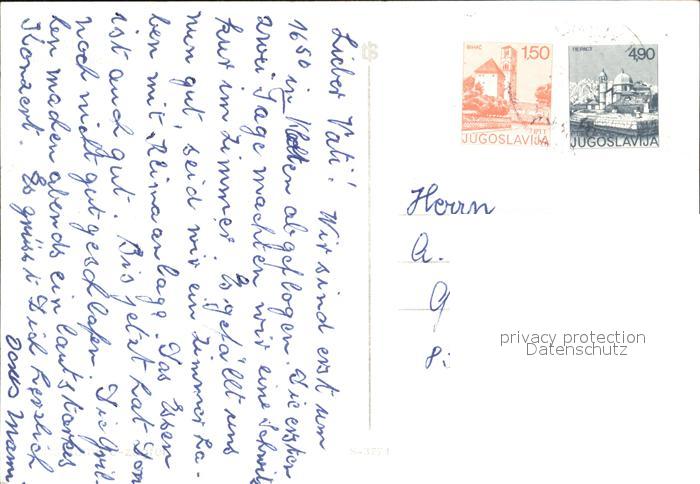 Lieber Vati! Wir sind erst um
1650 in Kloten abgeflogen. Die ersten
zwei Tage machten wir eine Schwitz
kur im Zimmer. Es gefällt uns
nun gut, seid wir ein Zimmer ha-
ben mit Klimaanlage. Das Essen
ist auch gut. Bis jetzt hat Dom
noch nicht gut geschlafen. Die Gril-
len machen abends ein lautstarkes
Konzert. Es grüsst Dich herzlich
Mami
BIHAĆ
1,50
JUGOSLAVIJA
ПЕРАСТ
4,90
JUGOSLAVIJA
Herrn
A.
G
privacy protection
Datenschutz
S-3771